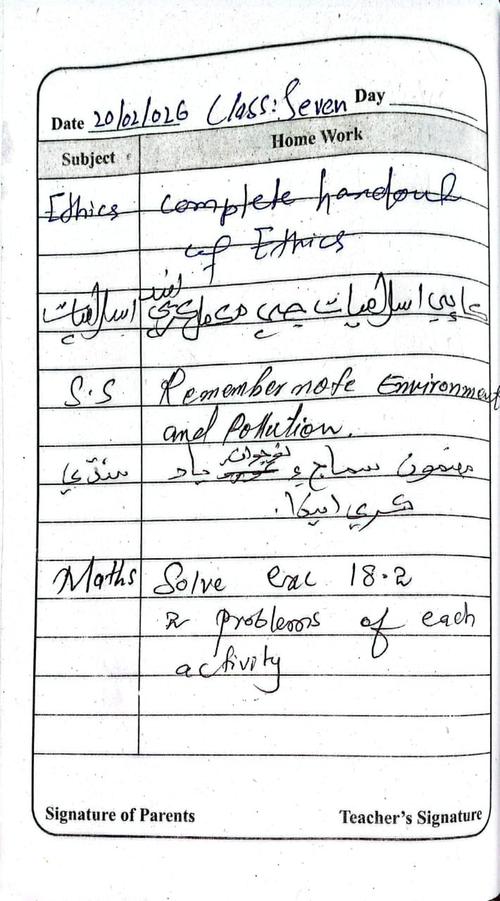 Date 20/02/026 Class: Seven Day
Subject Home Work
Ethics Complete handout
of Ethics
اسلاميات ڪاپي اسلاميات جي مڪمل ڪري
S.S Remember note Environment
and Pollution.
سنڌي مضمون سماج ۽ نوجوان ياد
ڪري
Maths Solve exc 18.2
2 problems of each
activity
Signature of Parents Teacher's Signature